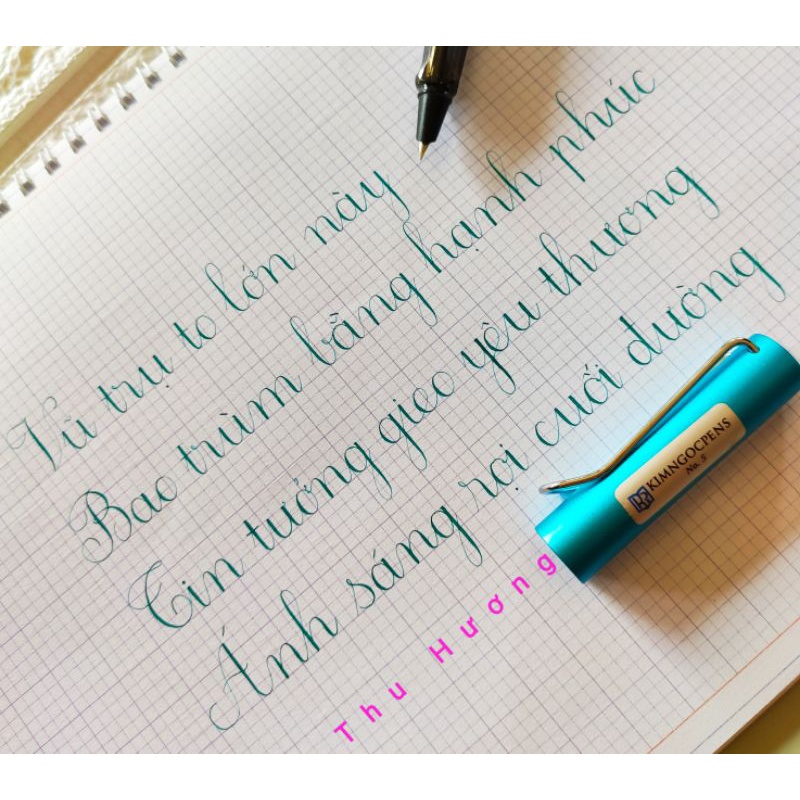 Vũ trụ to lớn này
Bao trùm bằng hạnh phúc
Tin tưởng gieo yêu thương
Ánh sáng rọi cuối đường
Thu Hương
KIMNGOCPENS
No. 5